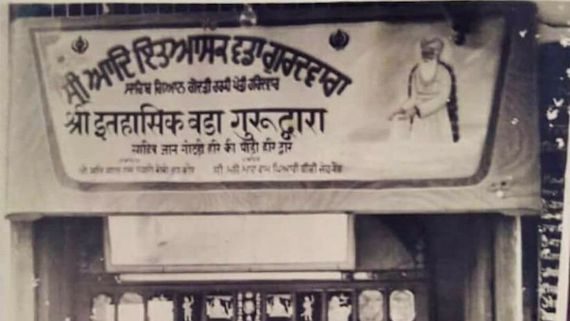 ਸ੍ਰੀ ਆਦਿ ਇਤਿਆਸਕ ਵਡਾ ਗੁਰਦਵਾਰਾ
ਸਾਹਿਬ ਗਿਆਨ ਗੋਦੜੀ ਹਰਕੀ ਪੌੜੀ ਹਰਿਦਵਾਰ
श्री इतहासिक वडा गुरूद्वारा
साहिब ज्ञान गोदड़ी हरि की पौड़ी हरि द्वार